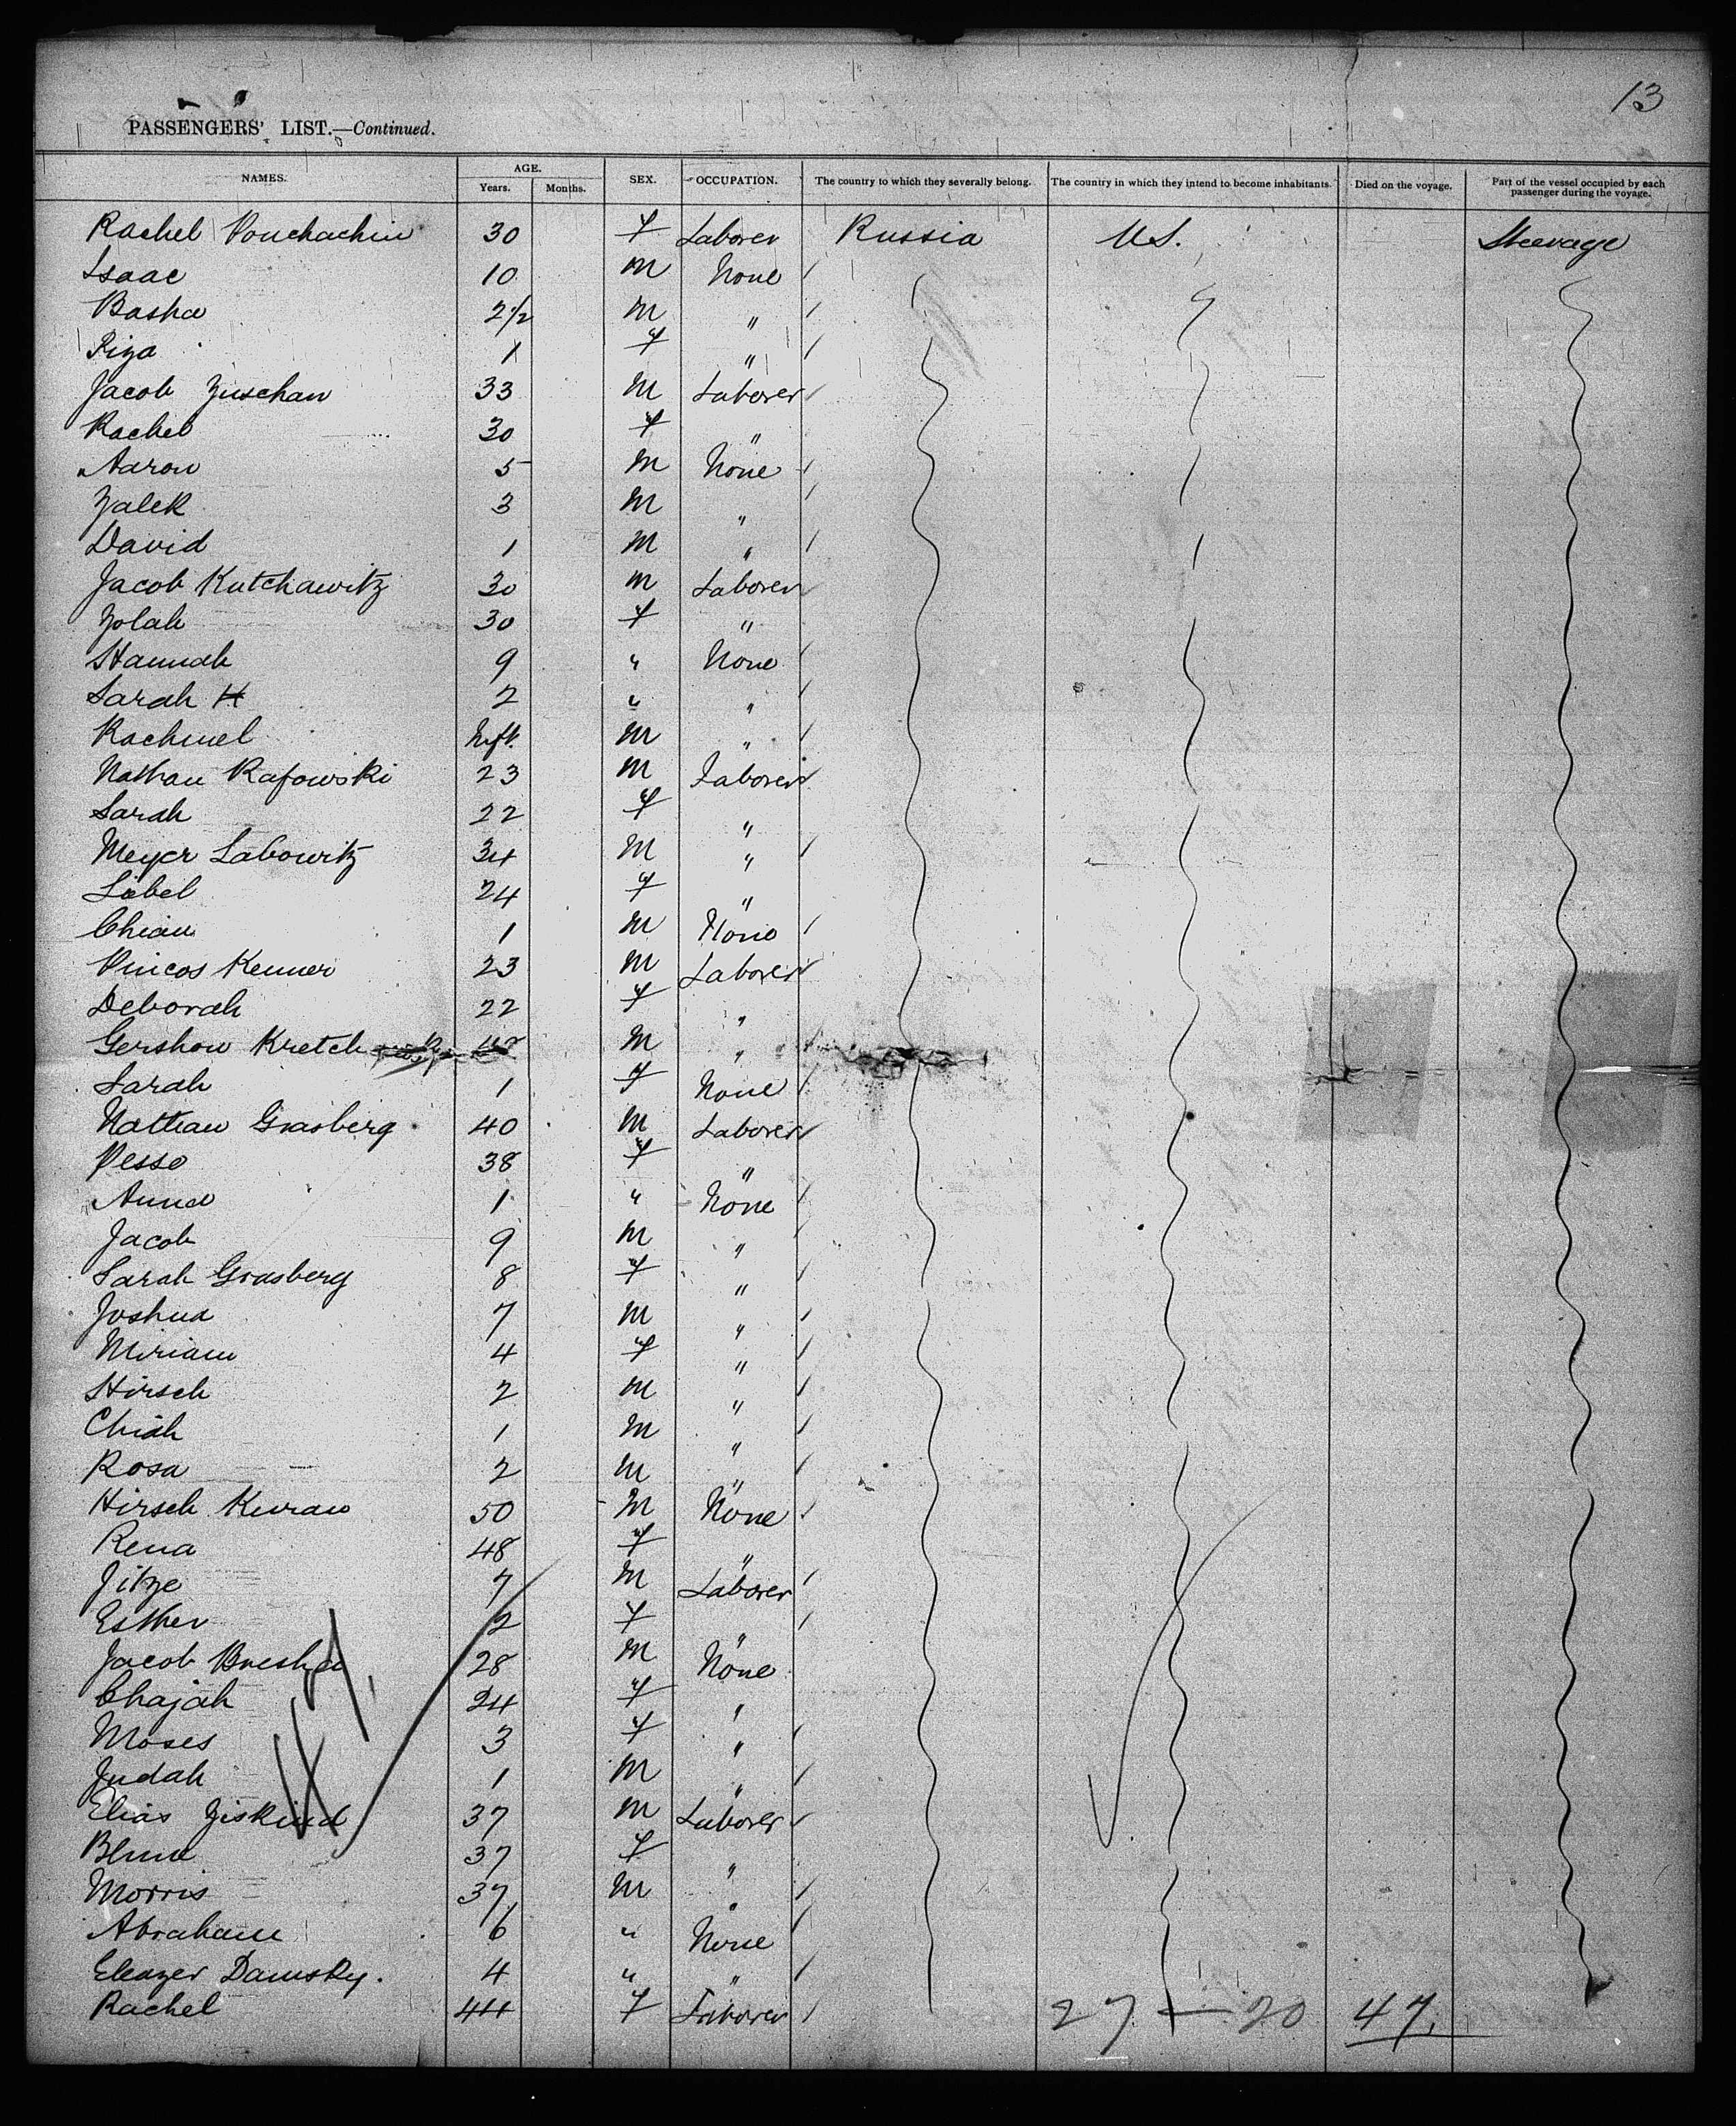 13
PASSENGERS' LIST.—Continued.
NAMES. AGE. Years. Months. SEX. OCCUPATION. The country to which they severally belong. The country in which they intend to become inhabitants. Died on the voyage. Part of the vessel occupied by each passenger during the voyage.
Rachel 30 f Laborer Russia U.S. Steerage
Isaac 10 m None
Basha 2½ m "
Riza 1 f "
Jacob Zuschan 33 m Laborer
Rachel 30 f "
Aaron 5 m None
Zalek 3 m "
David 1 m "
Jacob Kutchawitz 30 m Laborer
Zolah 30 f "
Hannah 9 " None
Sarah H 2 " "
Rachmel Inft. m "
Nathan Rafowski 23 m Laborer
Sarah 22 f "
Meyer Labowitz 34 m "
Libel 24 f "
Chian 1 m None
Pincos Kenner 23 m Laborer
Deborah 22 f "
Gershon Kretch m "
Sarah 1 f None
Nathan Grasberg 40 m Laborer
Pesse 38 f "
Anna 1 " None
Jacob 9 m "
Sarah Grasberg 8 f "
Joshua 7 m "
Miriam 4 f "
Hirsch 2 m "
Chiah 1 m "
Rosa 2 m "
Hirsch 50 m None
Rena 48 f "
Jitze 7 m Laborer
Esther 2 f "
Jacob 28 m None
Chajah 24 f "
Moses 3 f "
Judah 1 m "
Elias Ziskind 37 m Laborer
Blume 37 f "
Morris 37 m "
Abraham 6 " None
Eleazer Damsky. 4 " "
Rachel 44 f Laborer
27 — 20 47.